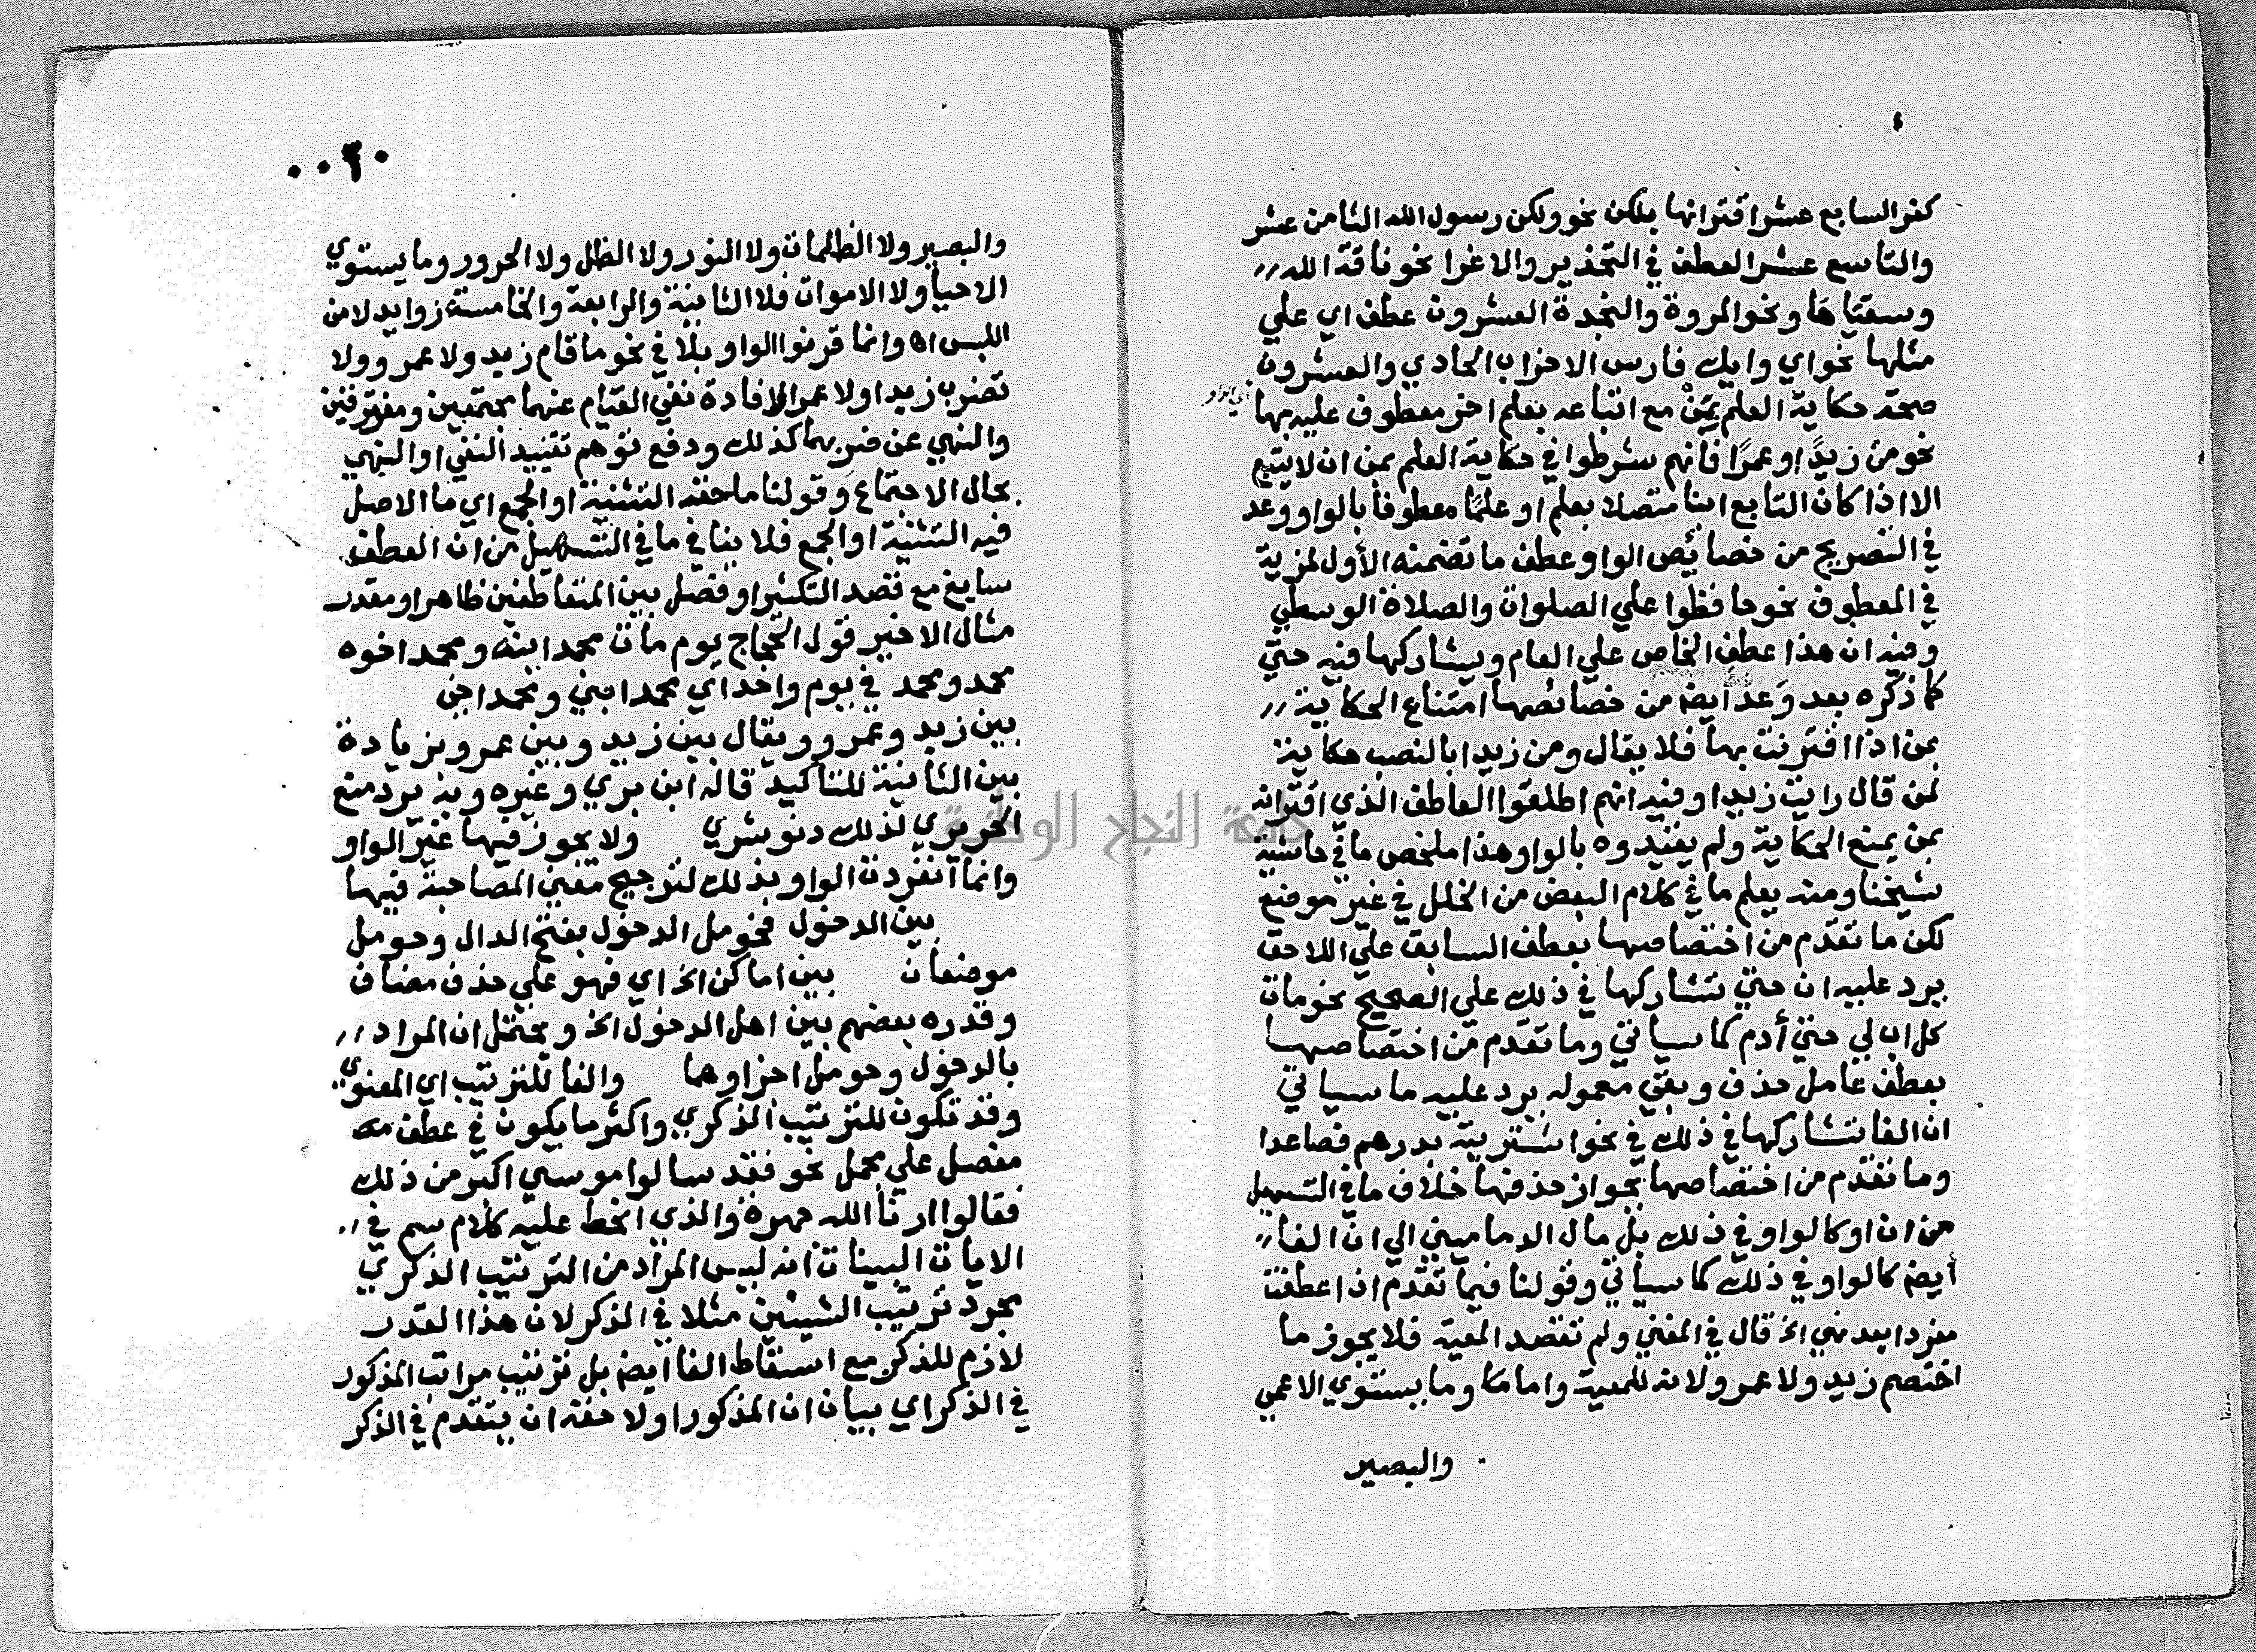 كفر السابع عشر اقترانها بلكن نحو ولكن رسول الله الثامن عشر
والتاسع عشر العطف في التحذير والاغرا نحو ناقة الله
وسقياها ونحو المروة والنجدة العشرون عطف اي علي
مثلها نحو اي وايك فارس الاحزاب الحادي والعشرون
صحة حكاية العلم بمَنْ مع اتباعه بعلم اخر معطوف عليه بها
اي الواو
نحو من زيدًا وعمرًا فانهم شرطوا في حكاية العلم بمن ان لا يتبع
الا اذا كان التابع ابنا متصلا بعلم او علمًا معطوفا بالواو وعد
في التصريح من خصائص الواو عطف ما تضمنه الأول لمزية
في المعطوف نحو حافظوا علي الصلوات والصلاة الوسطي
وفيه ان هذا عطف الخاص علي العام ويشاركها فيه حتي
كما ذكره بعد وَعد أيض من خصائصها امتناع الحكاية
بمن اذا اقترنت بها فلا يقال ومن زيدا بالنصب حكاية
لمن قال رايت زيدا وفيه انهم اطلقوا العاطف الذي اقترانه
بمن يمنع الحكاية ولم يقيدوه بالواو وهذا ملخص ما في حاشية
شيخنا ومنه يعلم ما في كلام البعض من الخلل في غير موضع
لكن ما تقدم من اختصاصها بعطف السابق علي اللاحق
يرد عليه ان حتي تشاركها في ذلك علي الصحيح نحو مات
كل اب لي حتي أدم كما سياتي وما تقدم من اختصاصها
بعطف عامل حذف وبقي معموله يرد عليه ما سياتي
ان الفا تشاركها في ذلك في نحو اشتريته بدرهم فصاعدا
وما تقدم من اختصاصها بجواز حذفها خلاف ما في التسهيل
من ان او كالواو في ذلك بل مال الدماميني الي ان الفا
أيض كالواو في ذلك كما سياتي وقولنا فيما تقدم اذا عطفت
مفردا بعد نهي الخ قال في المغني ولم تقصد المعية فلا يجوز ما
اختصم زيد ولا عمرو لانه للمعية واما وما يستوي الاعمي
والبصير
٠٠٢٠
والبصير ولا الظلمات ولا النور ولا الظل ولا الحرور وما يستوي
الاحيا ولا الاموات فلا الثانية والرابعة والخامسة زوايد لامن
اللبس اه وانما قرنوا الواو بلا في نحو ما قام زيد ولا عمرو ولا
تضرب زيدا ولا عمرا لافادة نفي القيام عنهما مجتمعين ومفترقين
والنهي عن ضربهما كذلك ودفع توهم تقييد النفي او النهي
بحال الاجتماع وقولنا ما حقه التثنية او الجمع اي ما الاصل
فيه التثنية او الجمع فلا ينافي ما في التسهيل من ان العطف
سايغ مع قصد التكثير او فصل بين المتعاطفين ظاهر او مقدر
مثال الاخير قول الحجاج يوم مات محمد ابنه ومحمد اخوه
محمد ومحمد في يوم واحد اي محمد ابني ومحمد اخي
بين زيد وعمرو ويقال بين زيد وبين عمرو بزيادة
بين الثانية للتاكيد قاله ابن بري وغيره وبه يرد منع
الحريري لذلك دنوشري ولا يجوز فيها غير الواو
وانما انفردت الواو بذلك لترجيح معني المصاحبة فيها
بين الدخول فحومل الدخول بفتح الدال وحومل
موضعان بين اماكن الخ اي فهو علي حذف مضاف
وقدره بعضهم بين اهل الدخول الخ ويحتمل ان المراد
بالدخول وحومل اجزاوهما والفا للترتيب اي المعنوي
وقد تكون للترتيب الذكري واكثر ما يكون في عطف
مفصل علي مجمل نحو فقد سالوا موسي اكبر من ذلك
فقالوا ارنا الله جهرة والذي انحط عليه كلام سم في
الايات البينات انه ليس المراد من الترتيب الذكري
مجرد ترتيب الشيئين مثلا في الذكر لان هذا القدر
لازم للذكر مع اسقاط الفا ايض بل ترتيب مراتب المذكور
في الذكر اي بيان ان المذكور اولا حقه ان يتقدم في الذكر
جامعة النجاح الوطنية